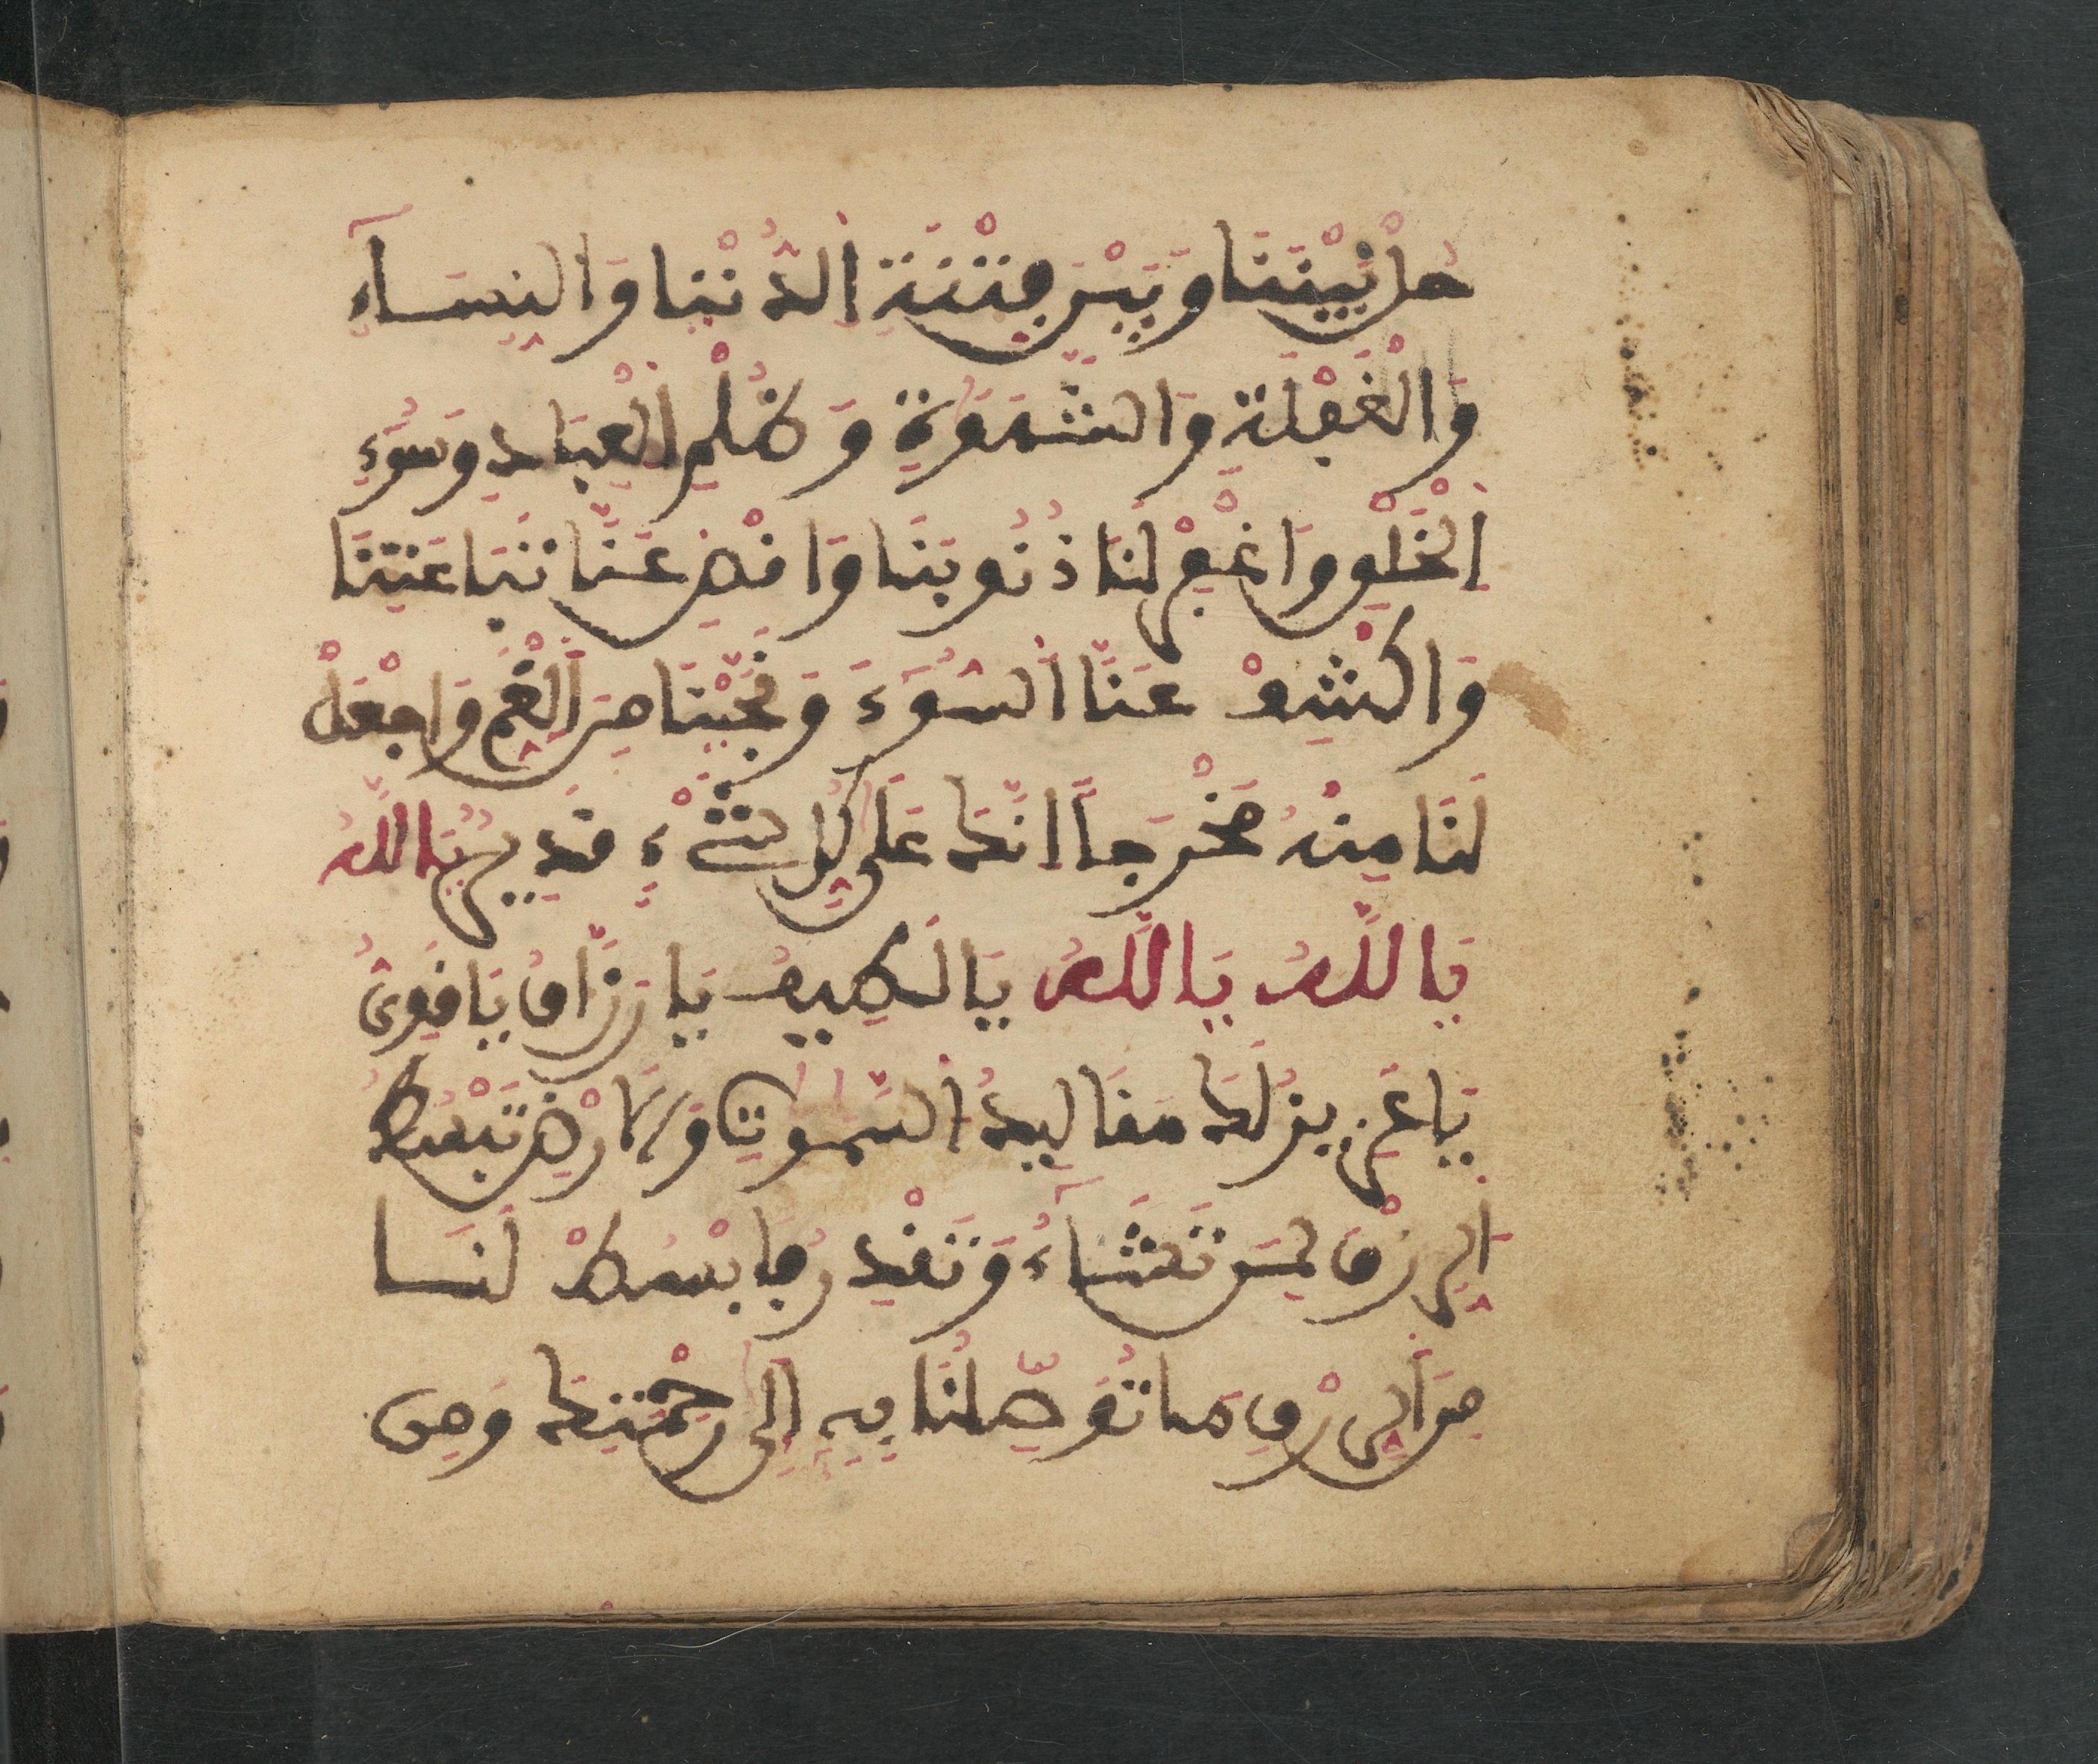 حُلْ بَيْنَنَا وَبَيْنَ فِتْنَةِ الدُّنْيَا وَالنِّسَآءِ
وَالْغَفْلَةِ وَالشَّهْوَةِ وَظُلْمِ الْعِبَادِ وَسُوءِ
اِلْخَلْقِ وَاغْفِرْ لَنَا ذُنُوبَنَا وَاقْضِ عَنَّا تَبَاعَتَنَا
وَاكْشِفْ عَنَّا السُّوءَ وَنَجِّنَا مِنَ الْغَمِّ وَاجْعَلْ
لَنَا مِنْهُ مَخْرَجاً انَّكَ عَلَى كُلِّ شَيْءٍ قَدِيرٌ يَا اللَّهُ
يَا اللَّهُ يَا اللَّهُ يَا لَطِيفُ يَا رَزَّاقُ يَا قَوِيُّ
يَا عَزِيزُ لَكَ مَقَالِيدُ السَّمٰوٰتِ وَالَارْضِ تَبْسُطُ
الرِّزْقَ لِمَن تَشَآءُ وَتَقْدِرُ فَابْسُطْ لَنَا
مِنَ الرِّزْقِ مَا تُوَصِّلُنَا بِهِ إِلَى رَحْمَتِكَ وَمِن